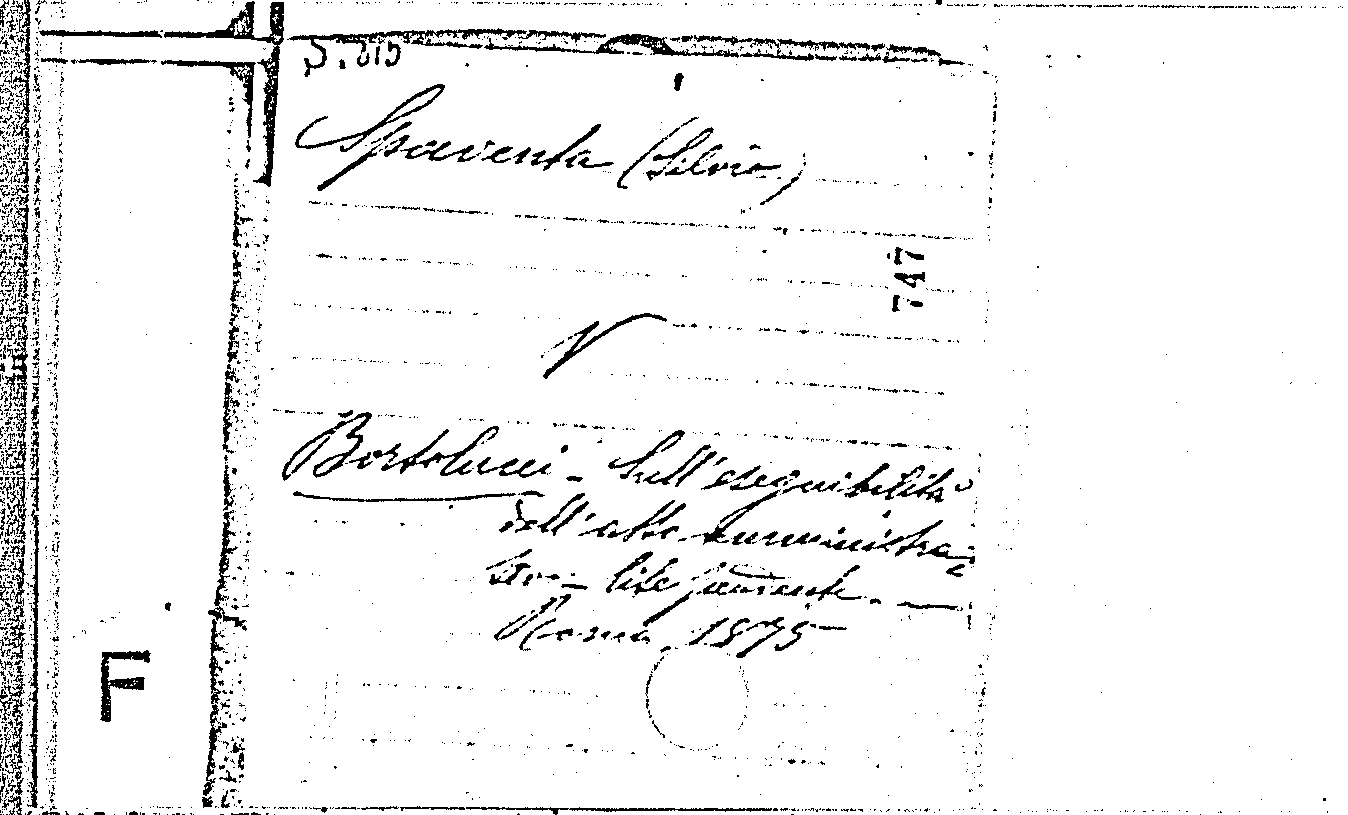 S. 215
Spaventa (Silvio)
747
V
Bortolucci - Sull'eseguibilità
dell'atto amministra=
tivo - lite pendente. —
Roma, 1875
F